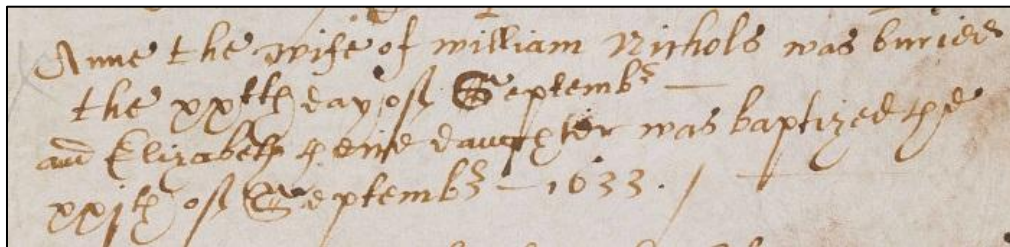 Anne the wife of william Nichols was buried
the xxtth day of Septembs
and Elizabeth theire daughter was baptized the
xxjth of Septembs - 1633.